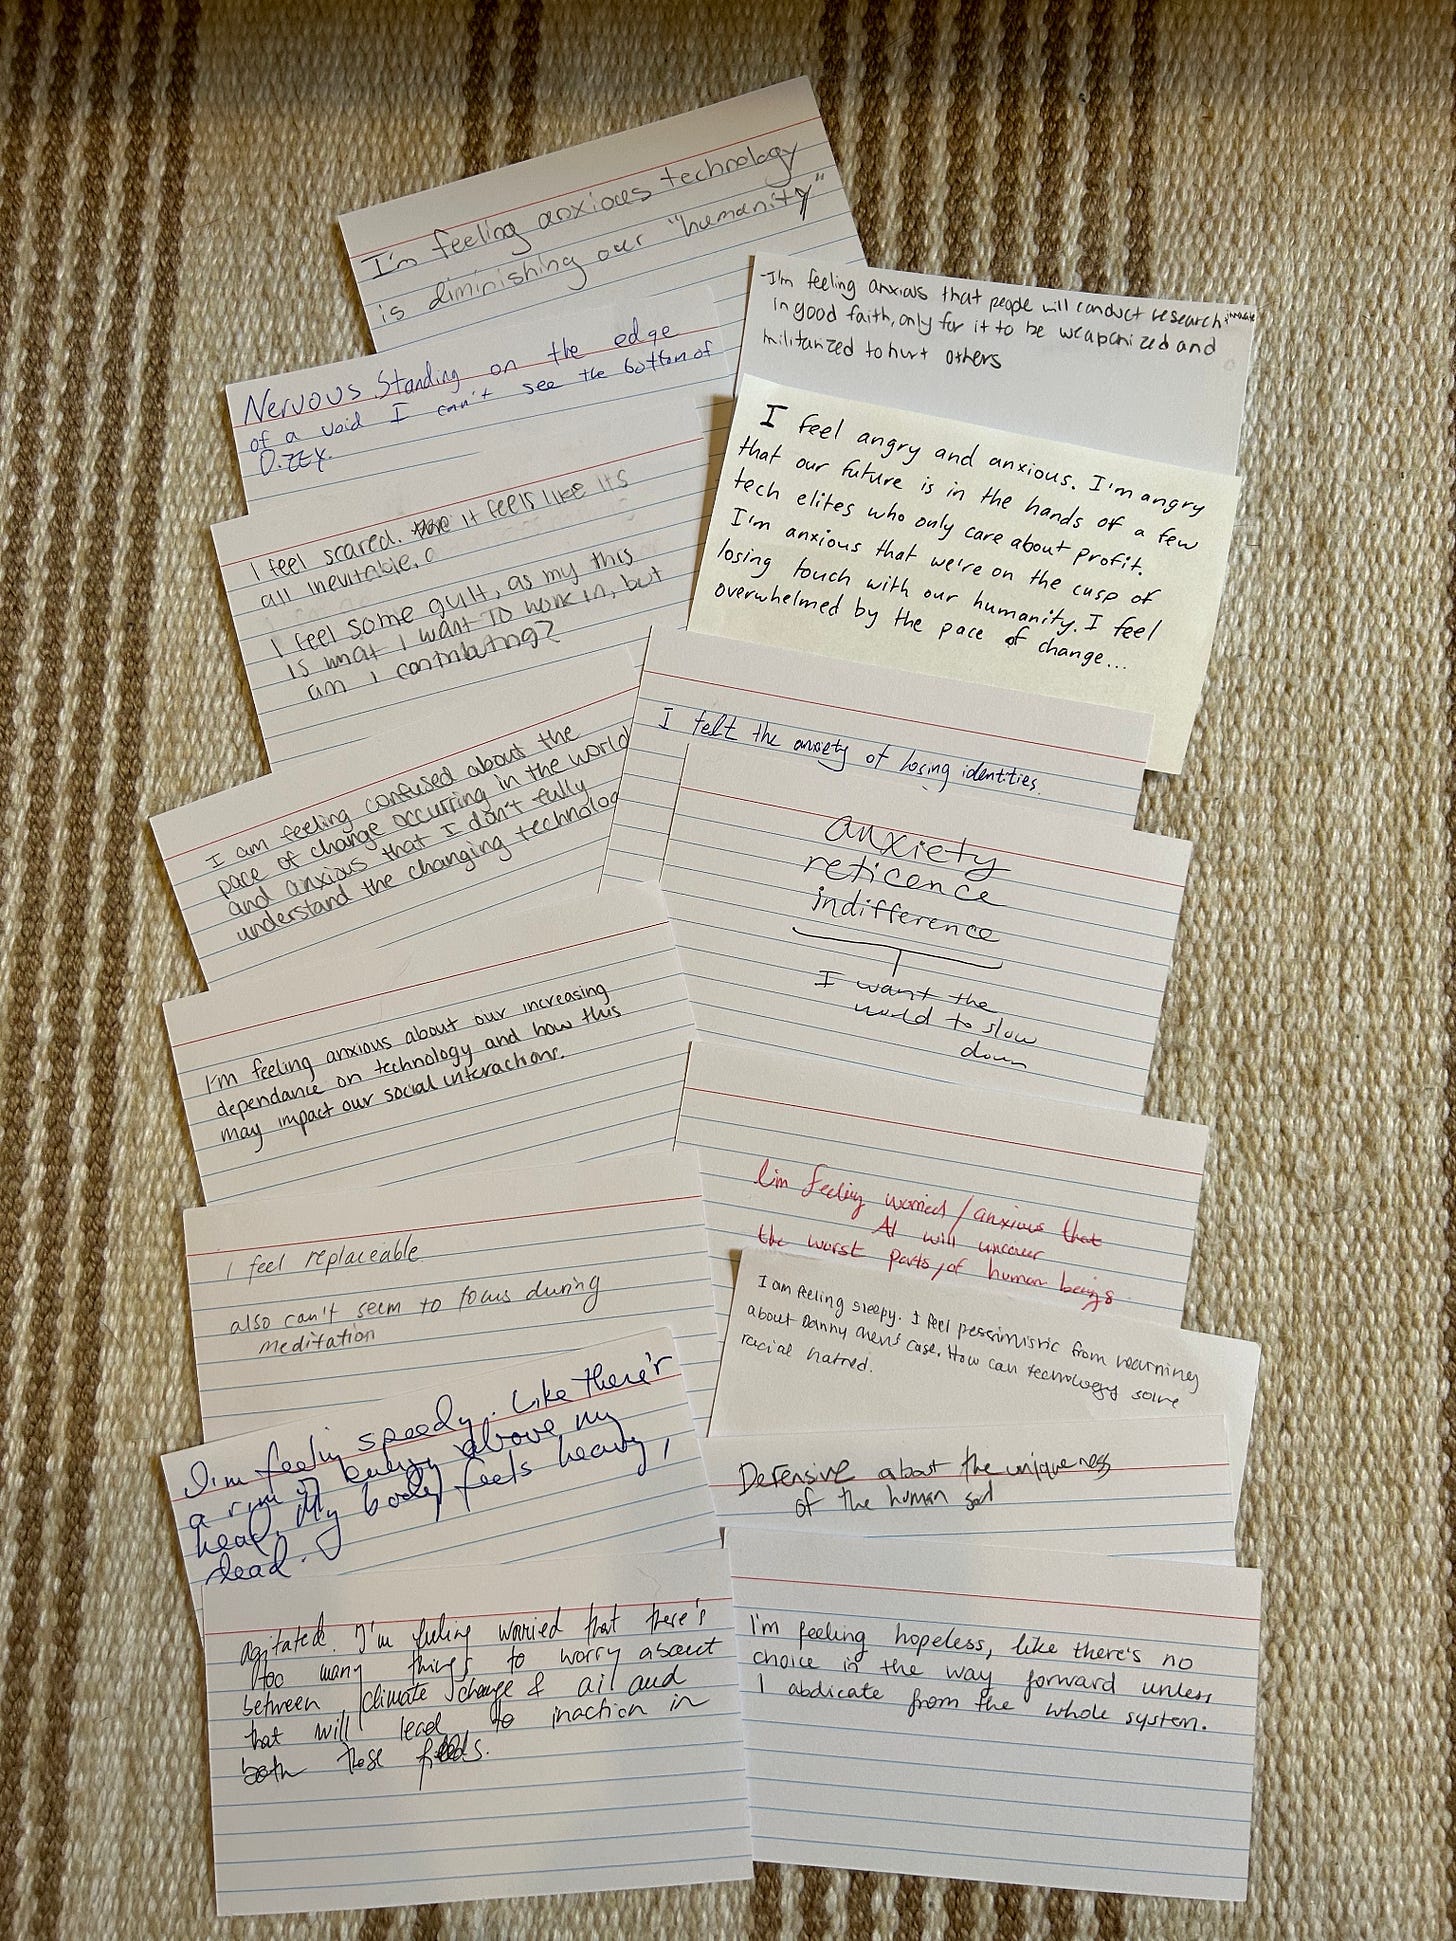 I'm feeling anxious technology
is diminishing our "humanity"
Nervous. Standing on the edge
of a void I can't see the bottom of
Dizzy.
I feel scared. it feels like its
all inevitable, a
I feel some guilt, as my this
is what I want to work in, but
am I contributing?
I am feeling confused about the
pace of change occurring in the world
and anxious that I don't fully
understand the changing technolog
I'm feeling anxious about our increasing
dependance on technology and how this
may impact our social interactions.
I feel replaceable
also can't seem to focus during
meditation
I'm feeling speedy. Like there'r
a rim of energy above my
head. My body feels heavy,
dead.
agitated. I'm feeling worried that there's
too many things to worry about
between climate change & ai and
that will lead to inaction in
both these fields.
-I'm feeling anxious that people will conduct research
in good faith, only for it to be weaponized and
militarized to hurt others
I feel angry and anxious. I'm angry
that our future is in the hands of a few
tech elites who only care about profit.
I'm anxious that we're on the cusp of
losing touch with our humanity. I feel
overwhelmed by the pace of change...
I felt the anxiety of losing identities.
anxiety
reticence
indifference
I want the
world to slow
down
I'm feeling worried/anxious that
AI will uncover
the worst parts of human beings
I am feeling sleepy. I feel pessimistic from learning
about Danny Chen's case. How can technology solve
racial hatred.
Defensive about the uniqueness
of the human soul
I'm feeling hopeless, like there's no
choice in the way forward unless
I abdicate from the whole system.